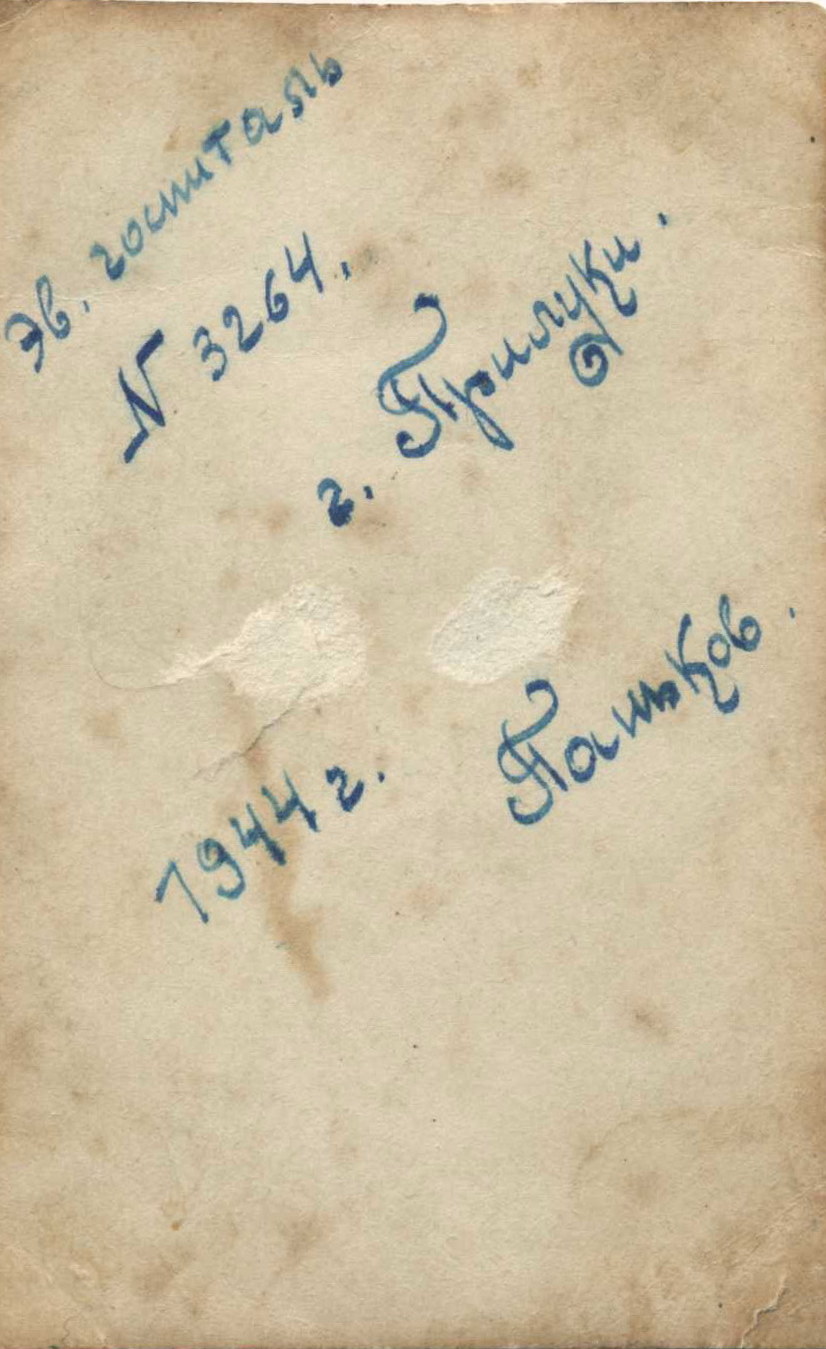 Эв. госпиталь
N 3264.
г. Прилуки.
1944 г. Паньков.